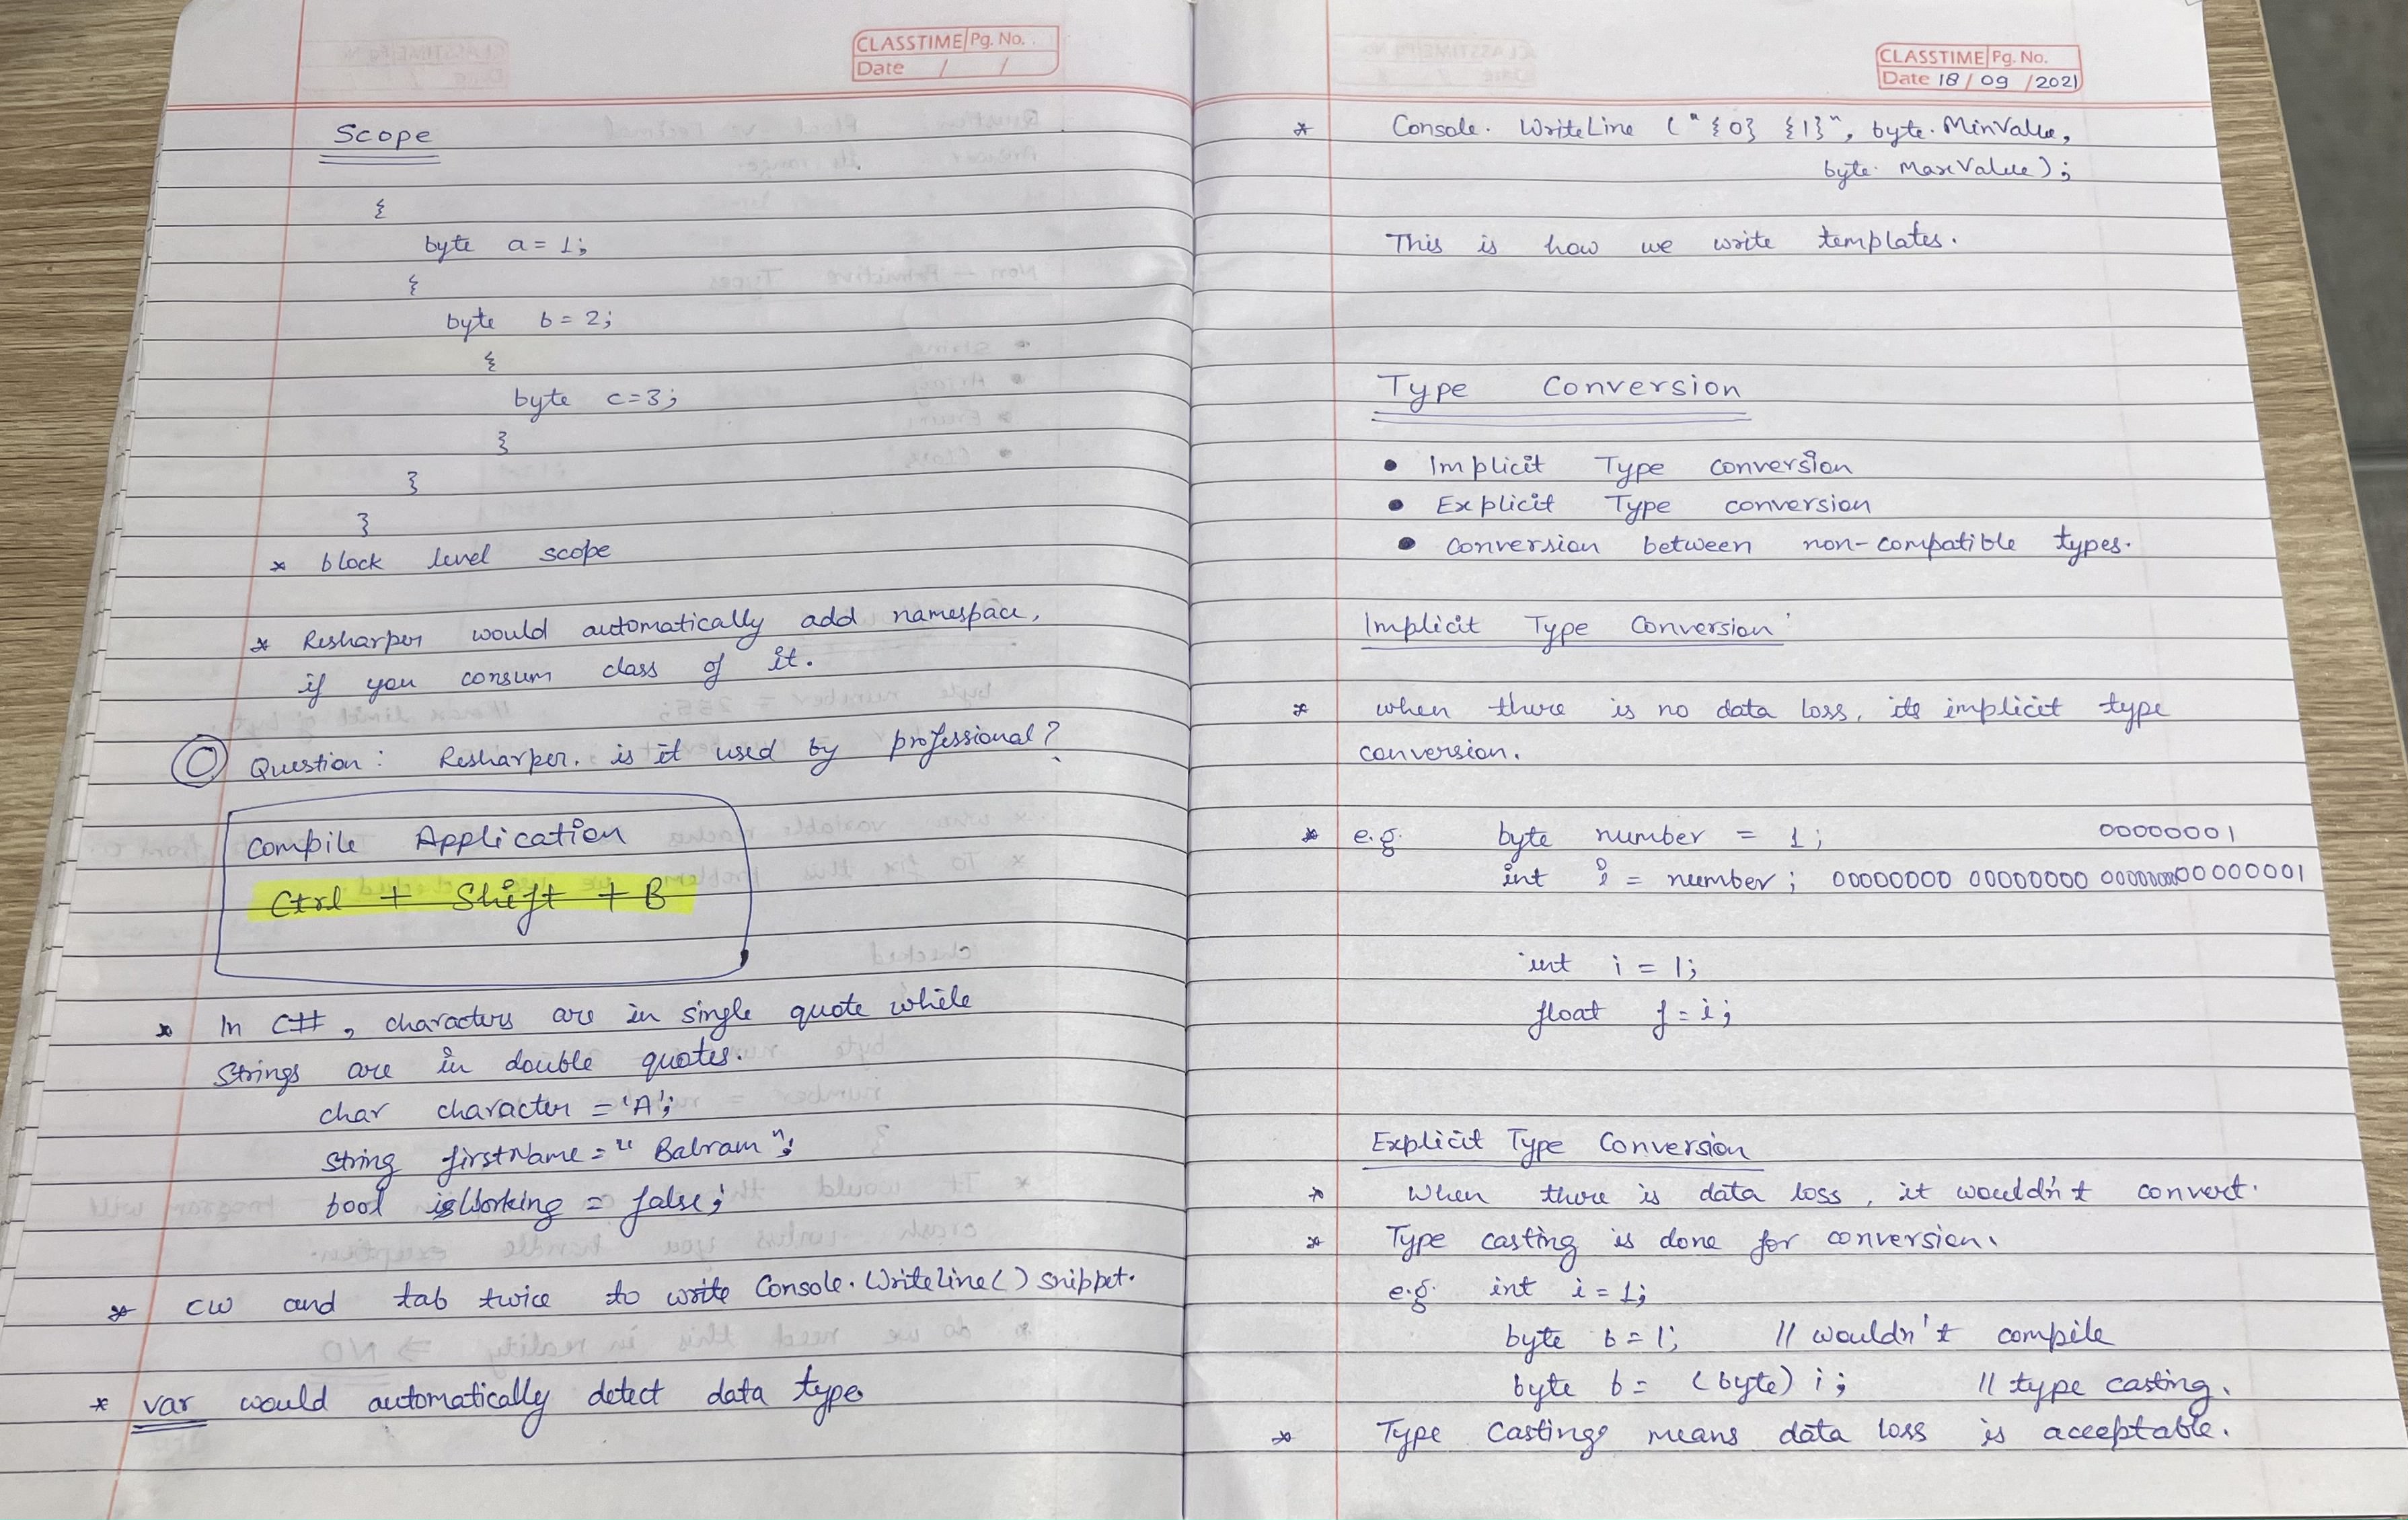 CLASSTIME Pg. No.
Date / /
Scope
{
byte a = 1;
{
byte b = 2;
{
byte c=3;
}
}
}
* block level scope
* Resharper would automatically add namespace,
if you consum class of it.
Question: Resharper. is it used by professional?
Compile Application
Ctrl + Shift + B
* In C#, characters are in single quote while
Strings are in double quotes.
char character = 'A';
string firstName = "Balram";
bool isWorking = false;
* cw and tab twice to write Console.WriteLine() snippet.
* var would automatically detect data type
CLASSTIME Pg. No.
Date 18/09/2021
* Console. WriteLine ("{0} {1}", byte.MinValue,
byte. MaxValue);
This is how we write templates.
Type Conversion
• Implicit Type conversion
• Explicit Type conversion
• conversion between non-compatible types.
Implicit Type Conversion
* when there is no data loss, its implicit type
conversion.
* e.g. byte number = 1; 00000001
int i = number; 00000000 00000000 00000000 00000001
int i = 1;
float f = i;
Explicit Type Conversion
* When there is data loss, it wouldn't convert.
* Type casting is done for conversion.
e.g. int i = 1;
byte b = 1; // wouldn't compile
byte b = (byte) i; // type casting.
* Type Casting means data loss is acceptable.